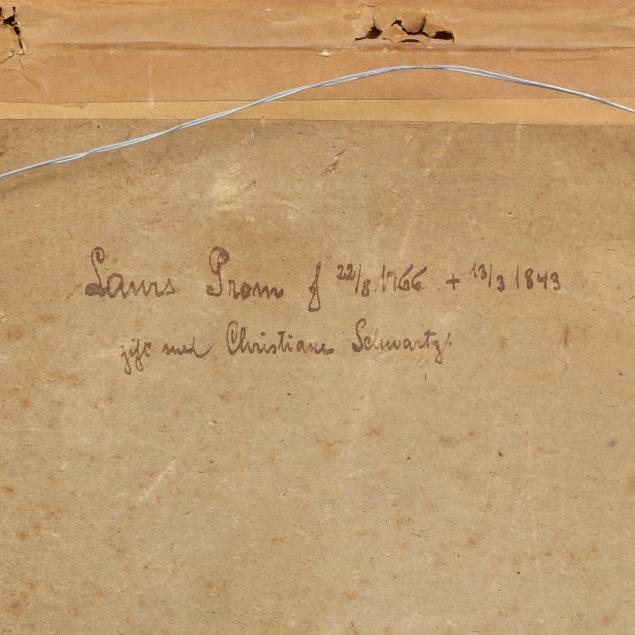 Laurs Prom f 22/8 1766 + 13/3 1843
gift med Christiane Schwartz.